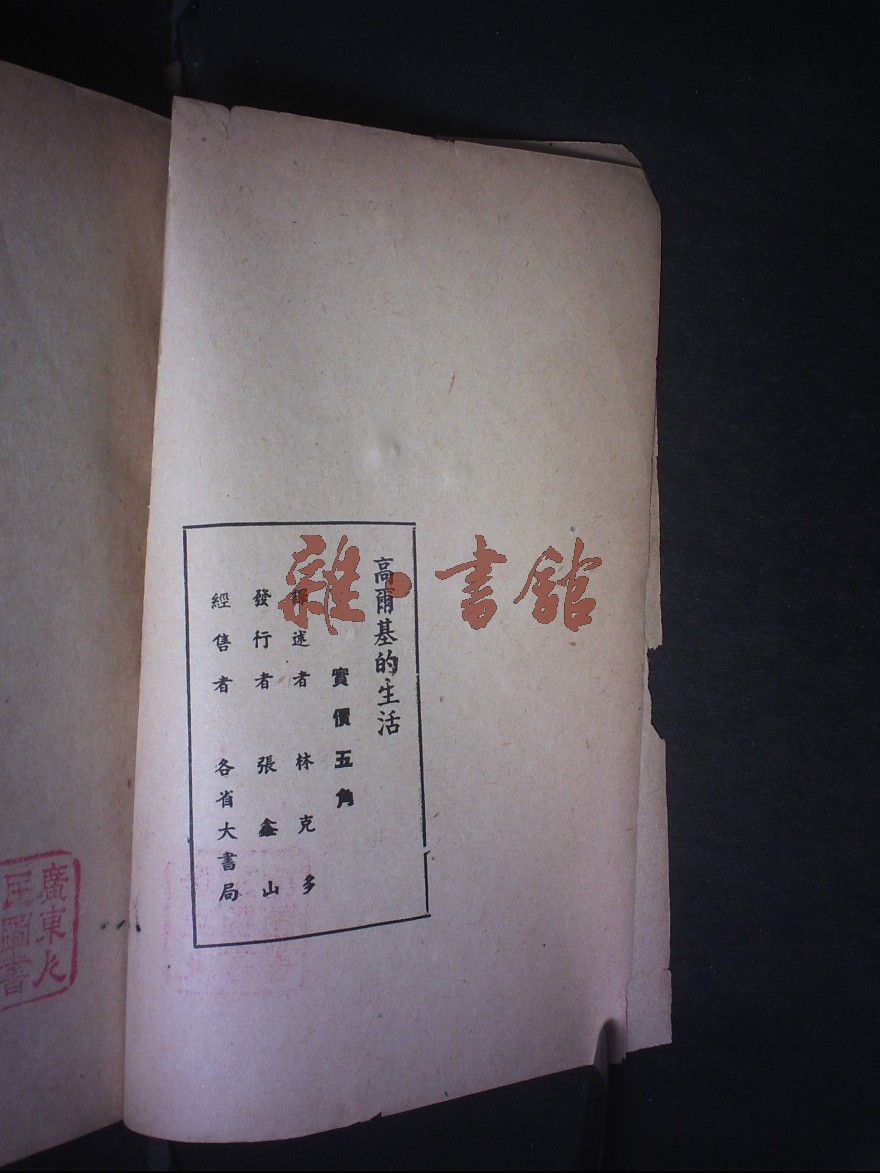 高爾基的生活
實價五角
述者 林克多
發行者 張鑫山
經售者 各省大書局
雜·書館
廣東人
民圖書